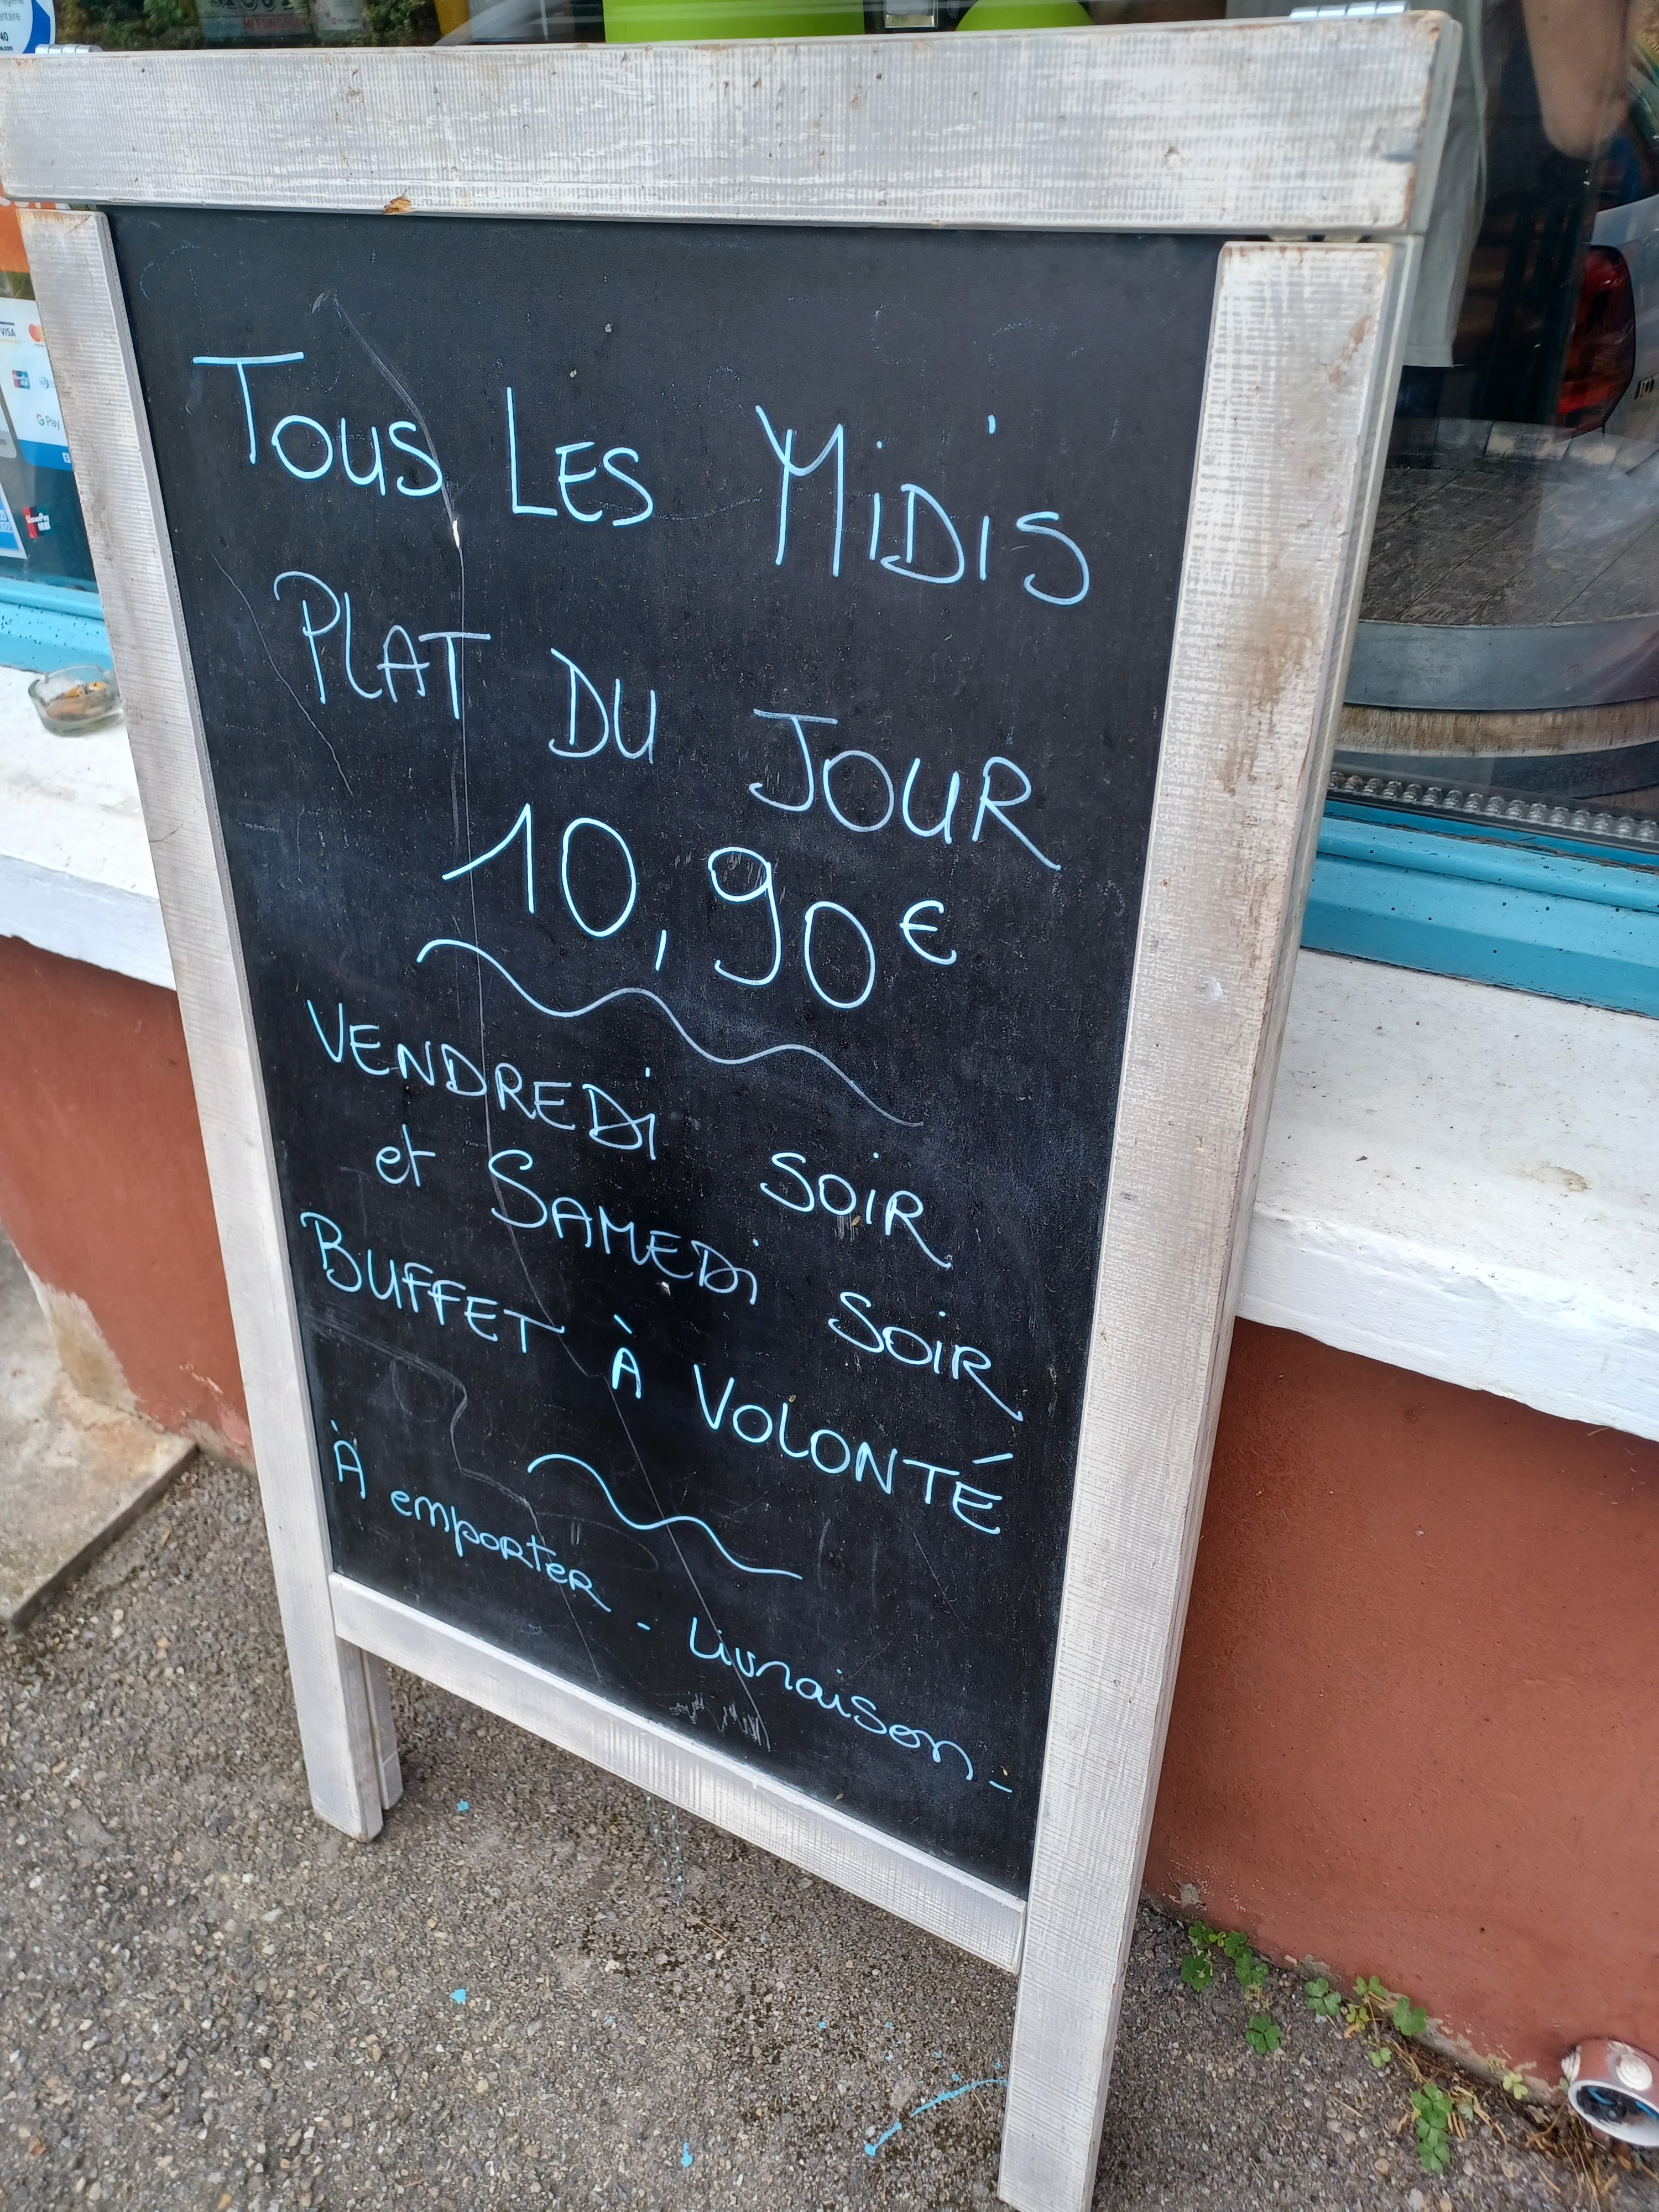 Tous Les Midis
PLAT DU JOUR
10,90€
VENDREDi SOiR
et SAMEDi SOiR
BUFFET À VOLONTÉ
À emporter - Livraison -
VISA
G Pay
UnionPay